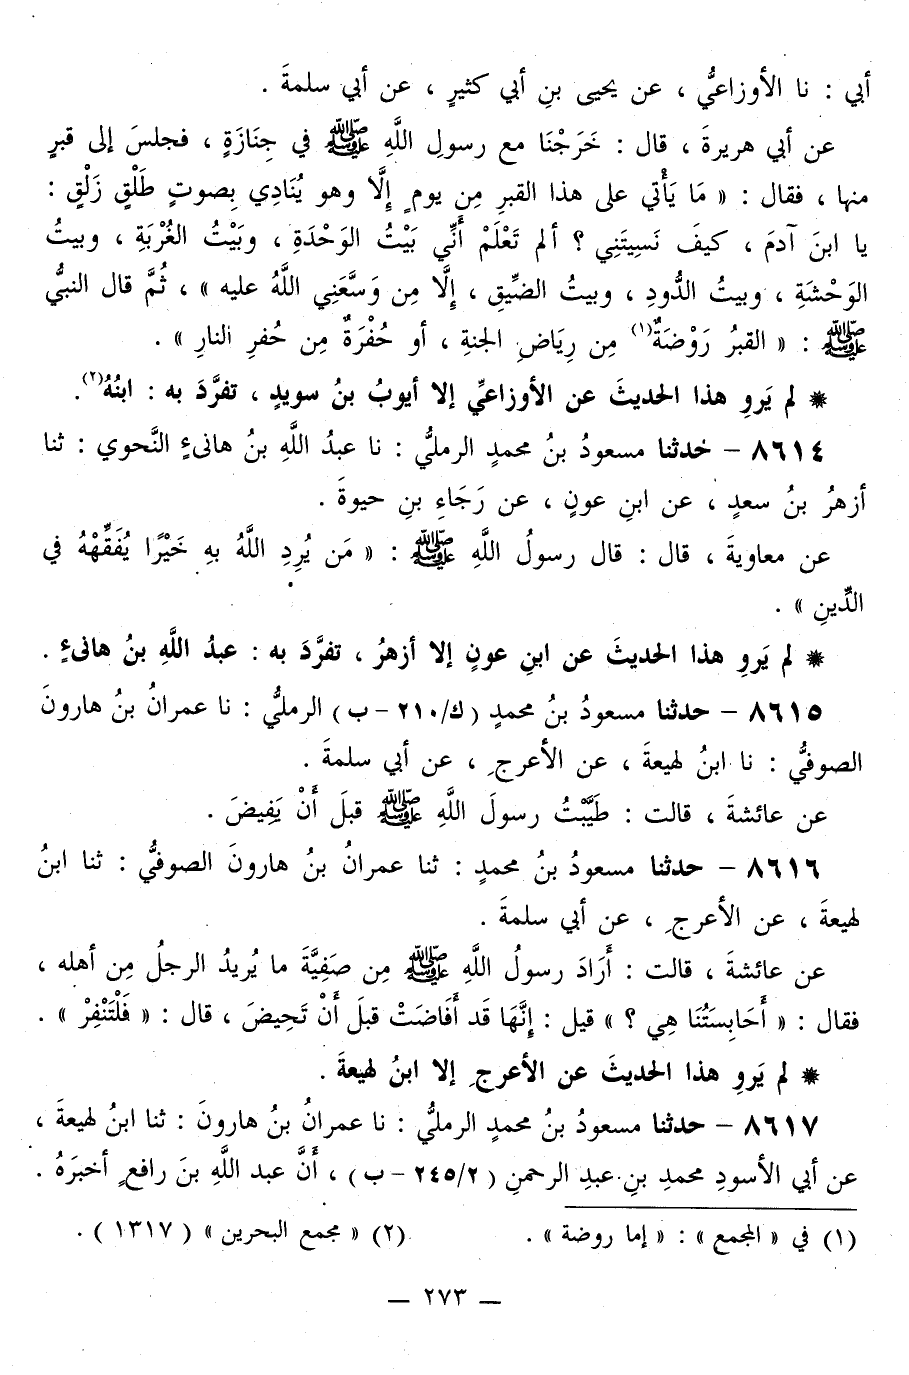 أبي : نا الأوزاعيُّ ، عن يحيى بنِ أبي كثيرٍ ، عن أبي سلمةَ .
عن أبي هريرةَ ، قال : خَرَجْنَا مع رسولِ اللَّهِ ﷺ في جِنَازَةٍ ، فجلسَ إلى قبرٍ
منها ، فقال : « مَا يَأْتي على هذا القبرِ مِن يومٍ إِلَّا وهو يُنَادِي بِصوتٍ طَلْقٍ زَلْقٍ :
يا ابنَ آدمَ ، كيفَ نَسِيتَنِي ؟ ألم تَعْلَمْ أَنِّي بَيْتُ الوَحْدَةِ ، وبَيْتُ الغُرْبَةِ ، وبيتُ
الوَحْشَةِ ، وبيتُ الدُّودِ ، وبيتُ الضِّيقِ ، إِلَّا مِن وَسَّعَنِي اللَّهُ عليه » ، ثُمَّ قال النبيُّ
ﷺ : « القبرُ رَوْضَةٌ(١) مِن رِيَاضِ الجنةِ ، أو حُفْرَةٌ مِن حُفرِ النارِ » .
* لم يَروِ هذا الحديثَ عن الأوزاعيِّ إلا أيوبُ بنُ سويدٍ ، تفرَّدَ به : ابنُهُ(٢).
٨٦١٤ – حدثنا مسعودُ بنُ محمدٍ الرمليُّ : نا عبدُ اللَّهِ بنُ هانىءٍ النَّحوي : ثنا
أزهرُ بنُ سعدٍ ، عن ابنِ عونٍ ، عن رَجَاءِ بنِ حيوةَ .
عن معاويةَ ، قال : قال رسولُ اللَّهِ ﷺ : « مَن يُرِدِ اللَّهُ بهِ خَيْرًا يُفَقِّهْهُ في
الدِّينِ » .
* لم يَروِ هذا الحديثَ عن ابنِ عونٍ إلا أزهرُ ، تفرَّدَ به : عبدُ اللَّهِ بنُ هانىءٍ .
٨٦١٥ – حدثنا مسعودُ بنُ محمدٍ ( ك/٢١٠ – ب ) الرمليُّ : نا عمرانُ بنُ هارونَ
الصوفيُّ : نا ابنُ لهيعةَ ، عن الأعرجِ ، عن أبي سلمةَ .
عن عائشةَ ، قالت : طَيَّبْتُ رسولَ اللَّهِ ﷺ قبلَ أَنْ يَفِيضَ .
٨٦١٦ – حدثنا مسعودُ بنُ محمدٍ : ثنا عمرانُ بنُ هارونَ الصوفيُّ : ثنا ابنُ
لهيعةَ ، عن الأعرجِ ، عن أبي سلمةَ .
عن عائشةَ ، قالت : أَرَادَ رسولُ اللَّهِ ﷺ مِن صَفِيَّةَ ما يُريدُ الرجلُ مِن أهله ،
فقال : « أَحَابِسَتُنَا هِي ؟ » قيل : إِنَّهَا قَد أَفَاضَتْ قبلَ أَنْ تَحِيضَ ، قال : « فَلْتَنْفِرْ » .
* لم يَروِ هذا الحديثَ عن الأعرجِ إلا ابنُ لهيعةَ .
٨٦١٧ – حدثنا مسعودُ بنُ محمدٍ الرمليُّ : نا عمرانُ بنُ هارونَ : ثنا ابنُ لهيعةَ ،
عن أبي الأسودِ محمدِ بنِ عبدِ الرحمنِ ( ٢٤٥/٢ – ب ) ، أَنَّ عبد اللَّهِ بنَ رافعٍ أخبَرَهُ .
(١) في « المجمع » : « إما روضة » . (٢) « مجمع البحرين » ( ١٣١٧ ) .
— ٢٧٣ —